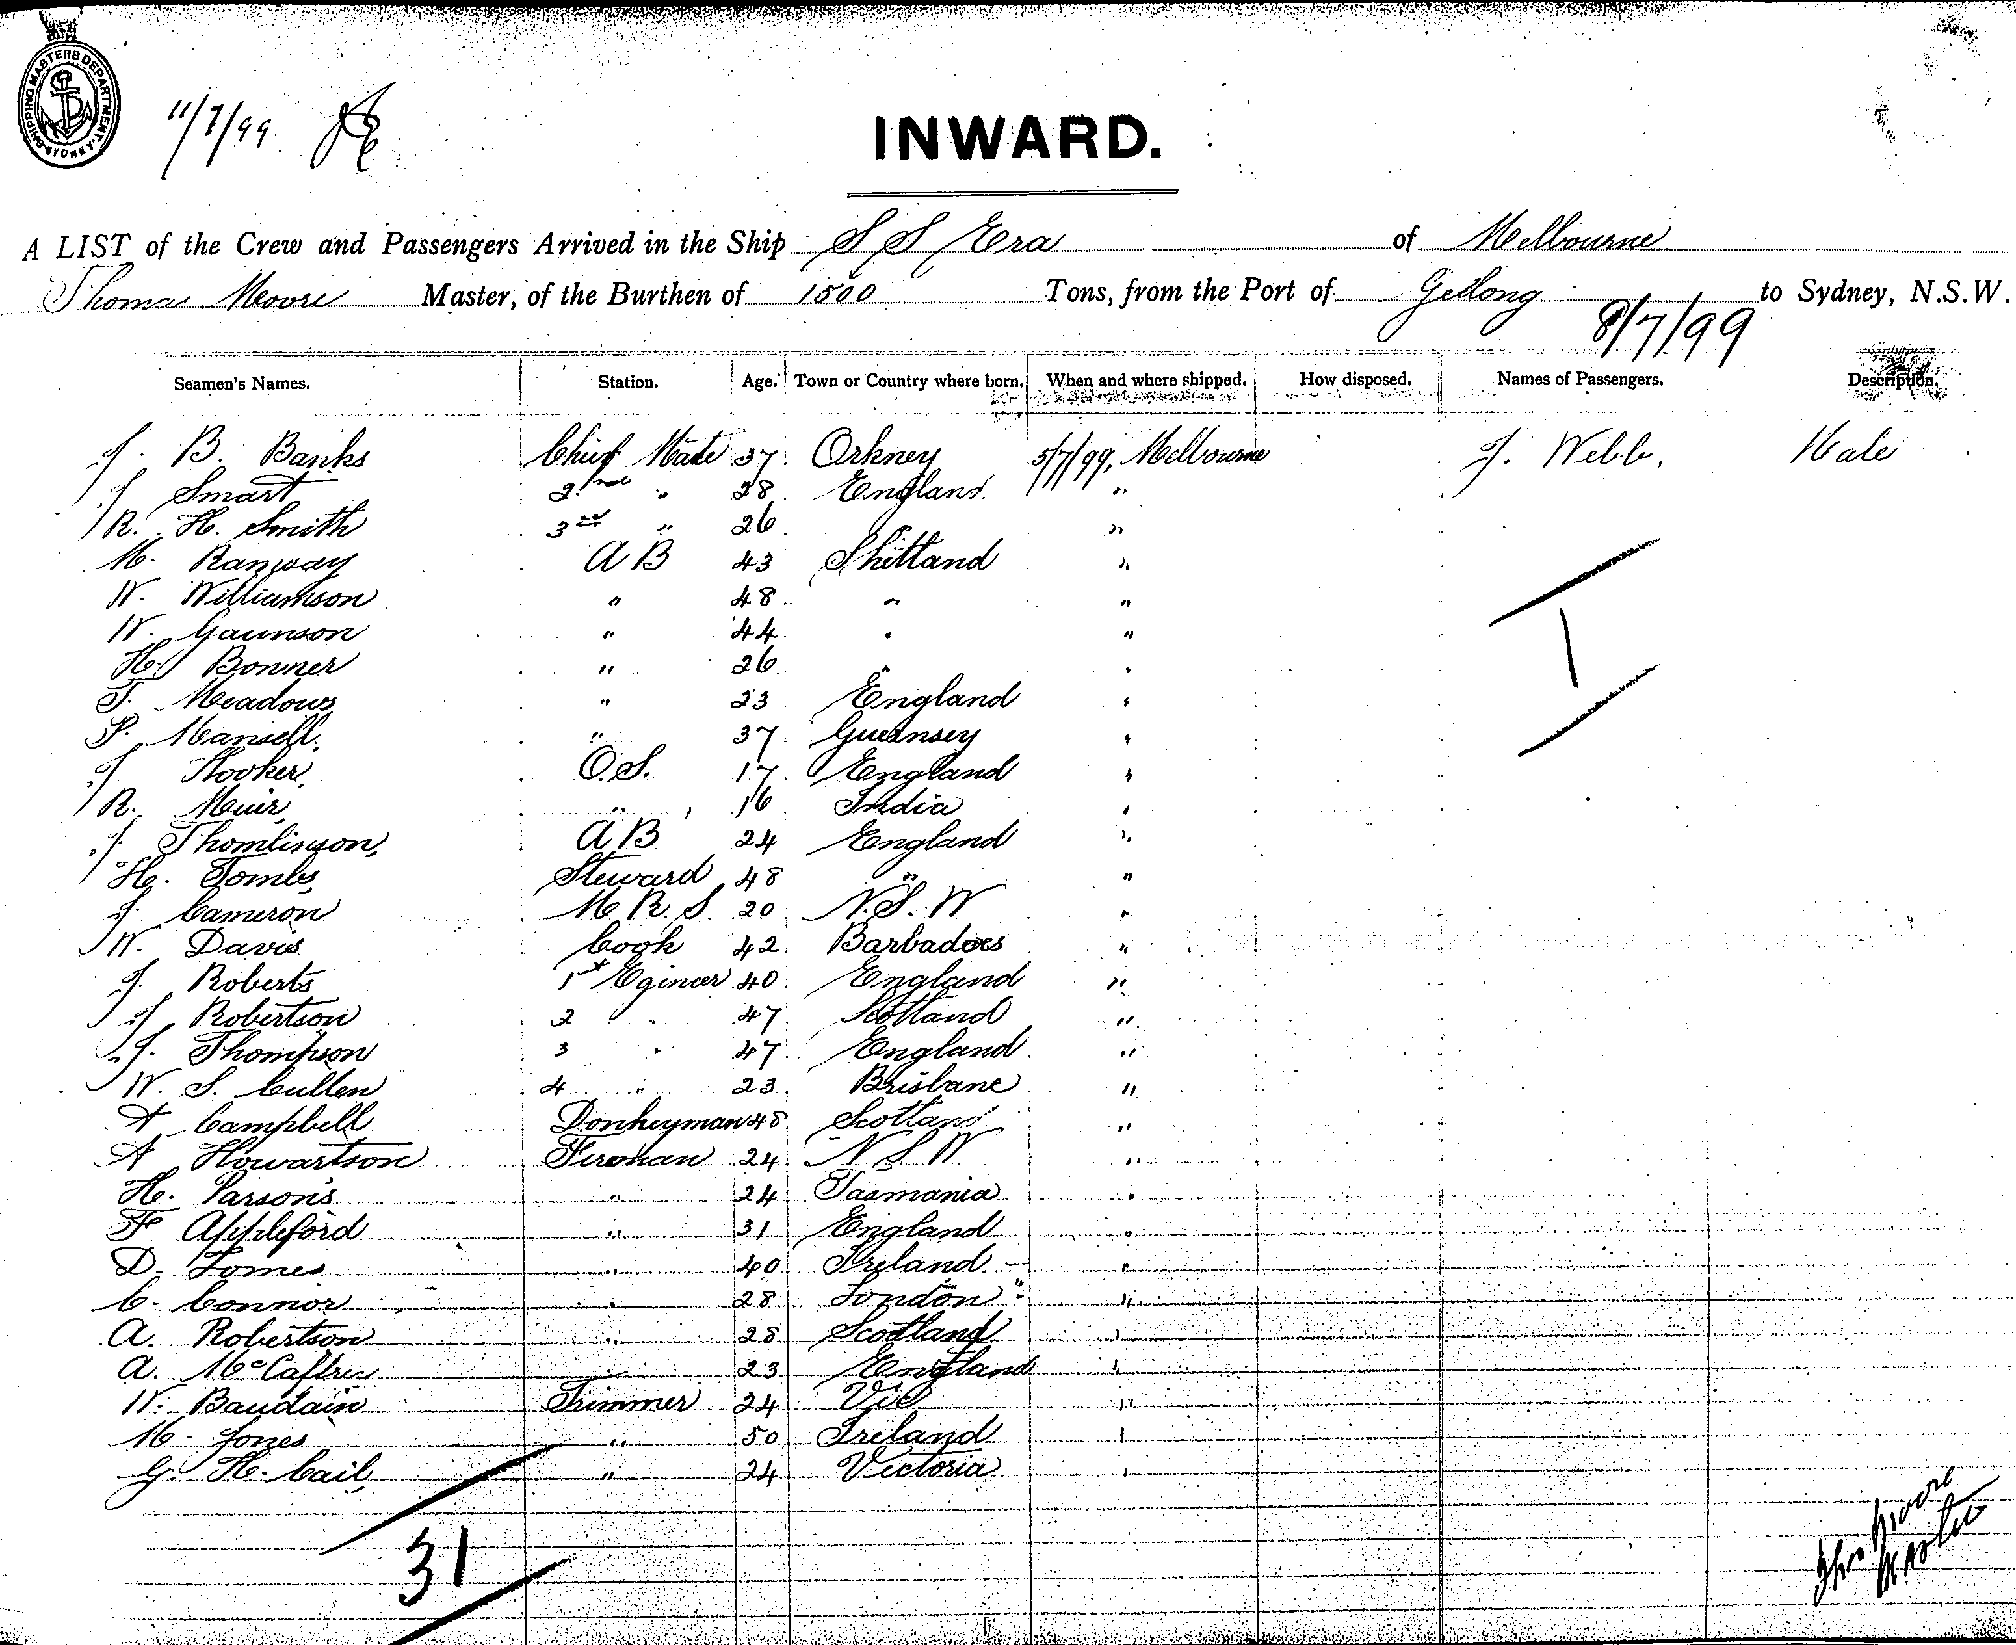 SHIPPING MASTERS DEPARTMENT SYDNEY
11/7/99
INWARD.
A LIST of the Crew and Passengers Arrived in the Ship S S Era of Melbourne
Thomas Moore Master, of the Burthen of 1500 Tons, from the Port of Geelong to Sydney, N.S.W.
8/7/99
Seamen's Names. Station. Age. Town or Country where born. When and where shipped. How disposed. Names of Passengers. Description.
J. B. Banks Chief Mate 37 Orkney 5/7/99, Melbourne J. Webb, Male
J Smart 2nd " 28 England "
R. H. Smith 3rd " 26 "
M. Ranway A B 43 Shitland "
W. Williamson " 48 " "
W. Gaunson " 44 " "
H. Bonner " 26 " "
T. Meadows " 23 England "
P. Mansell " 37 Guernsey "
J Hooker O.S. 17 England "
R. Muir " 16 India "
J. Thomlinson, A B 24 England "
H. Tombs Steward 48 " "
J Cameron M. R. S. 20 N.S.W "
W. Davis Cook 42 Barbadoes "
J. Roberts 1st Egineer 40 England "
J Robertson 2 " 47 Scotland "
J. Thompson 3 " 47 England "
W. S. Cullen 4 " 23 Brisbane "
A Campbell Donkeyman 48 Scotland "
A Howartson Fireman 24 N S W "
H. Parsons " 24 Tasmania "
F Appleford " 31 England "
D. Tomes " 40 Ireland "
C. Connor " 28 London "
A. Robertson " 28 Scotland "
A. McCaffrey " 23 England "
W. Baudain Trimmer 24 Vic "
M. Jones " 50 Ireland "
G. H. Cail, " 24 Victoria "
1
31
Thos Moore
Master